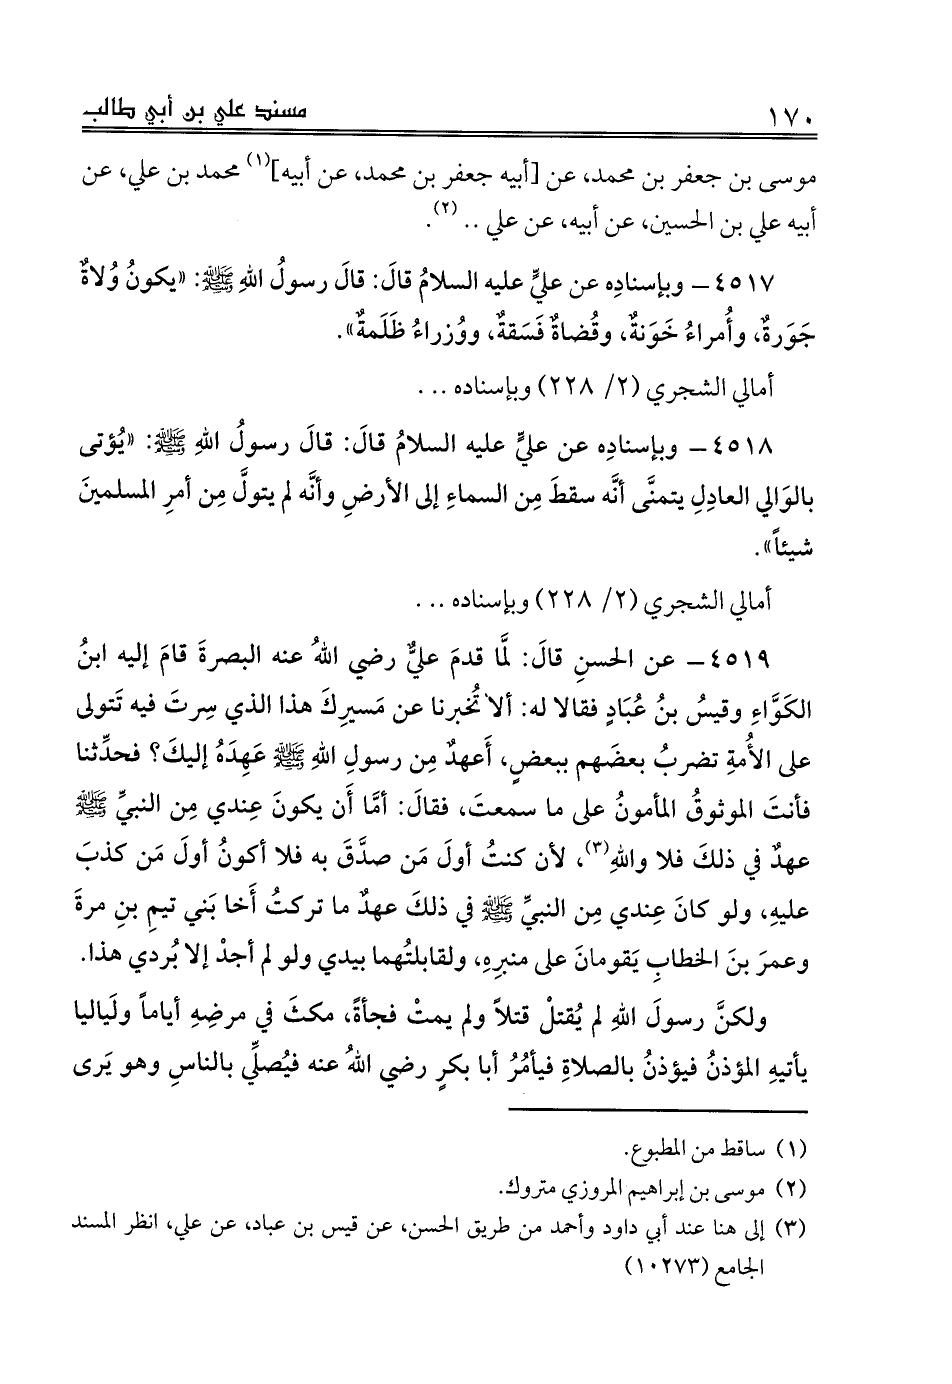 ١٧٠ مسند علي بن أبي طالب
موسى بن جعفر بن محمد، عن [أبيه جعفر بن محمد، عن أبيه](١) محمد بن علي، عن
أبيه علي بن الحسين، عن أبيه، عن علي .. (٢).
٤٥١٧ – وبإسنادِه عن عليٍّ عليه السلامُ قالَ: قالَ رسولُ اللهِ ﷺ: «يكونُ وُلاةٌ
جَوَرةٌ، وأُمراءُ خَوَنةٌ، وقُضاةٌ فَسَقةٌ، ووُزراءُ ظَلَمةٌ».
أمالي الشجري (٢/ ٢٢٨) وبإسناده ...
٤٥١٨ – وبإسنادِه عن عليٍّ عليه السلامُ قالَ: قالَ رسولُ اللهِ ﷺ: «يُؤتى
بالوَالي العادِلِ يتمنَّى أنَّه سقطَ مِن السماءِ إلى الأرضِ وأنَّه لم يتولَّ مِن أمرِ المسلمينَ
شيئاً».
أمالي الشجري (٢/ ٢٢٨) وبإسناده ...
٤٥١٩ – عن الحسنِ قالَ: لمَّا قدمَ عليٌّ رضي اللهُ عنه البصرةَ قامَ إليه ابنُ
الكَوَّاءِ وقيسُ بنُ عُبَادٍ فقالا له: ألا تُخبرنا عن مَسيرِكَ هذا الذي سِرتَ فيه تَتولى
على الأُمةِ تضربُ بعضَهم ببعضٍ، أَعهدٌ مِن رسولِ اللهِ ﷺ عَهِدَهُ إليكَ؟ فحدِّثنا
فأنتَ الموثوقُ المأمونُ على ما سمعتَ، فقالَ: أمَّا أن يكونَ عِندي مِن النبيِّ ﷺ
عهدٌ في ذلكَ فلا واللهِ(٣)، لأن كنتُ أولَ مَن صدَّقَ به فلا أكونُ أولَ مَن كذبَ
عليهِ، ولو كانَ عِندي مِن النبيِّ ﷺ في ذلكَ عهدٌ ما تركتُ أخا بَني تيمِ بنِ مرةَ
وعمرَ بنَ الخطابِ يَقومانَ على منبرِهِ، ولقابلتُهما بيدي ولو لم أجدْ إلا بُردي هذا.
ولكنَّ رسولَ اللهِ لم يُقتلْ قتلاً ولم يمتْ فجأةً، مكثَ في مرضِهِ أياماً ولَياليا
يأتيهِ المؤذنُ فيؤذنُ بالصلاةِ فيأمُرُ أبا بكرٍ رضي اللهُ عنه فيُصلِّي بالناسِ وهو يَرى
(١) ساقط من المطبوع.
(٢) موسى بن إبراهيم المروزي متروك.
(٣) إلى هنا عند أبي داود وأحمد من طريق الحسن، عن قيس بن عباد، عن علي، انظر المسند
الجامع (١٠٢٧٣)